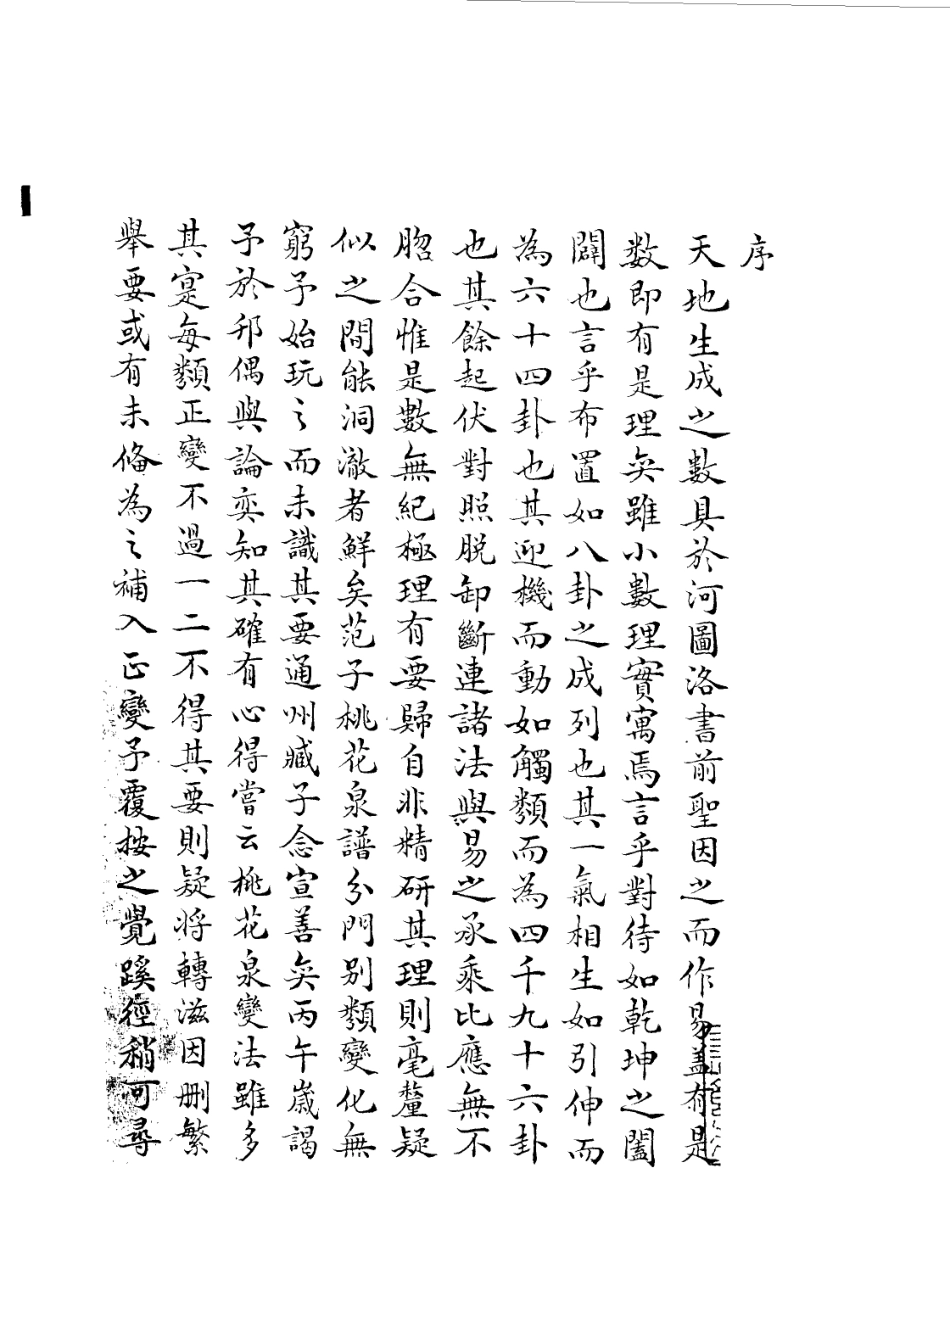 序
天地生成之數具於河圖洛書前聖因之而作易盖有是
数即有是理奕雖小數理實寓焉言乎對待如乾坤之闔
闢也言乎布置如八卦之成列也其一氣相生如引伸而
為六十四卦也其迎機而動如觸類而為四千九十六卦
也其餘起伏對照脱卸斷連諸法與易之承乘比應無不
脗合惟是數無紀極理有要歸自非精研其理則毫釐疑
似之間能洞澈者鮮矣范子桃花泉譜分門别類變化無
窮予始玩之而未識其要通州臧子念宣善奕丙午嵗謁
予於邗偶與論奕知其確有心得嘗云桃花泉變法雖多
其寔每類正變不過一二不得其要則疑将轉滋因删繁
舉要或有未俻為之補入正變予覆按之覺蹊徑稍可尋